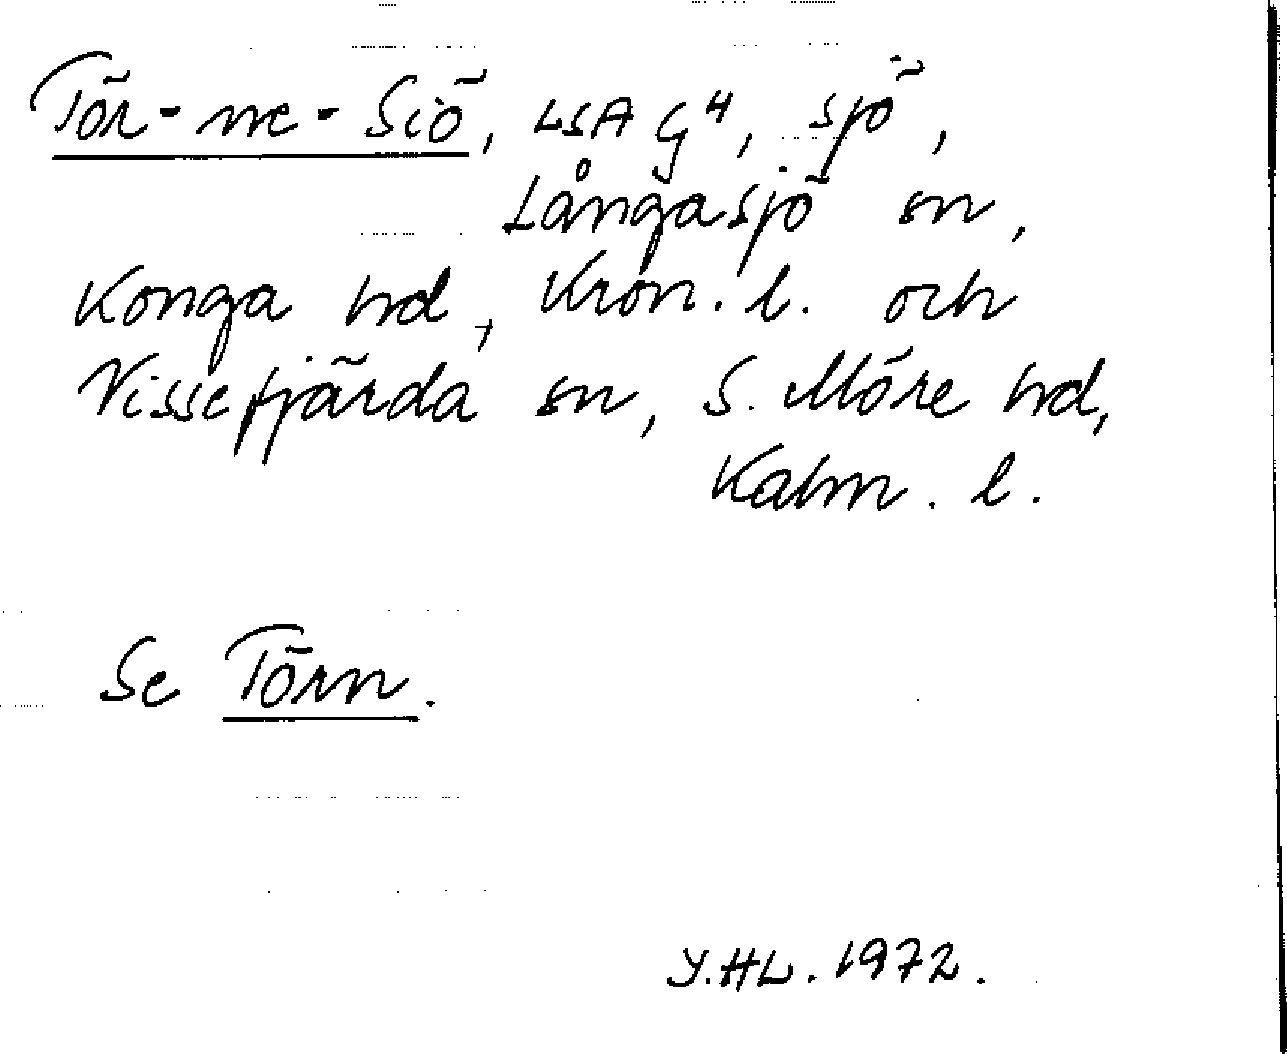 Tör-ne-Siö, LSA G4, sjö,
Långasjö sn,
Konga hd, Kron. l. och
Vissefjärda sn, S. Möre hd,
Kalm. l.
Se Törn.
Y.HL. 1972.